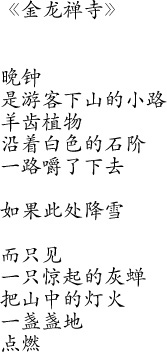 《金龙禅寺》
晚钟
是游客下山的小路
羊齿植物
沿着白色的石阶
一路嚼了下去
如果此处降雪
而只见
一只惊起的灰蝉
把山中的灯火
一盏盏地
点燃